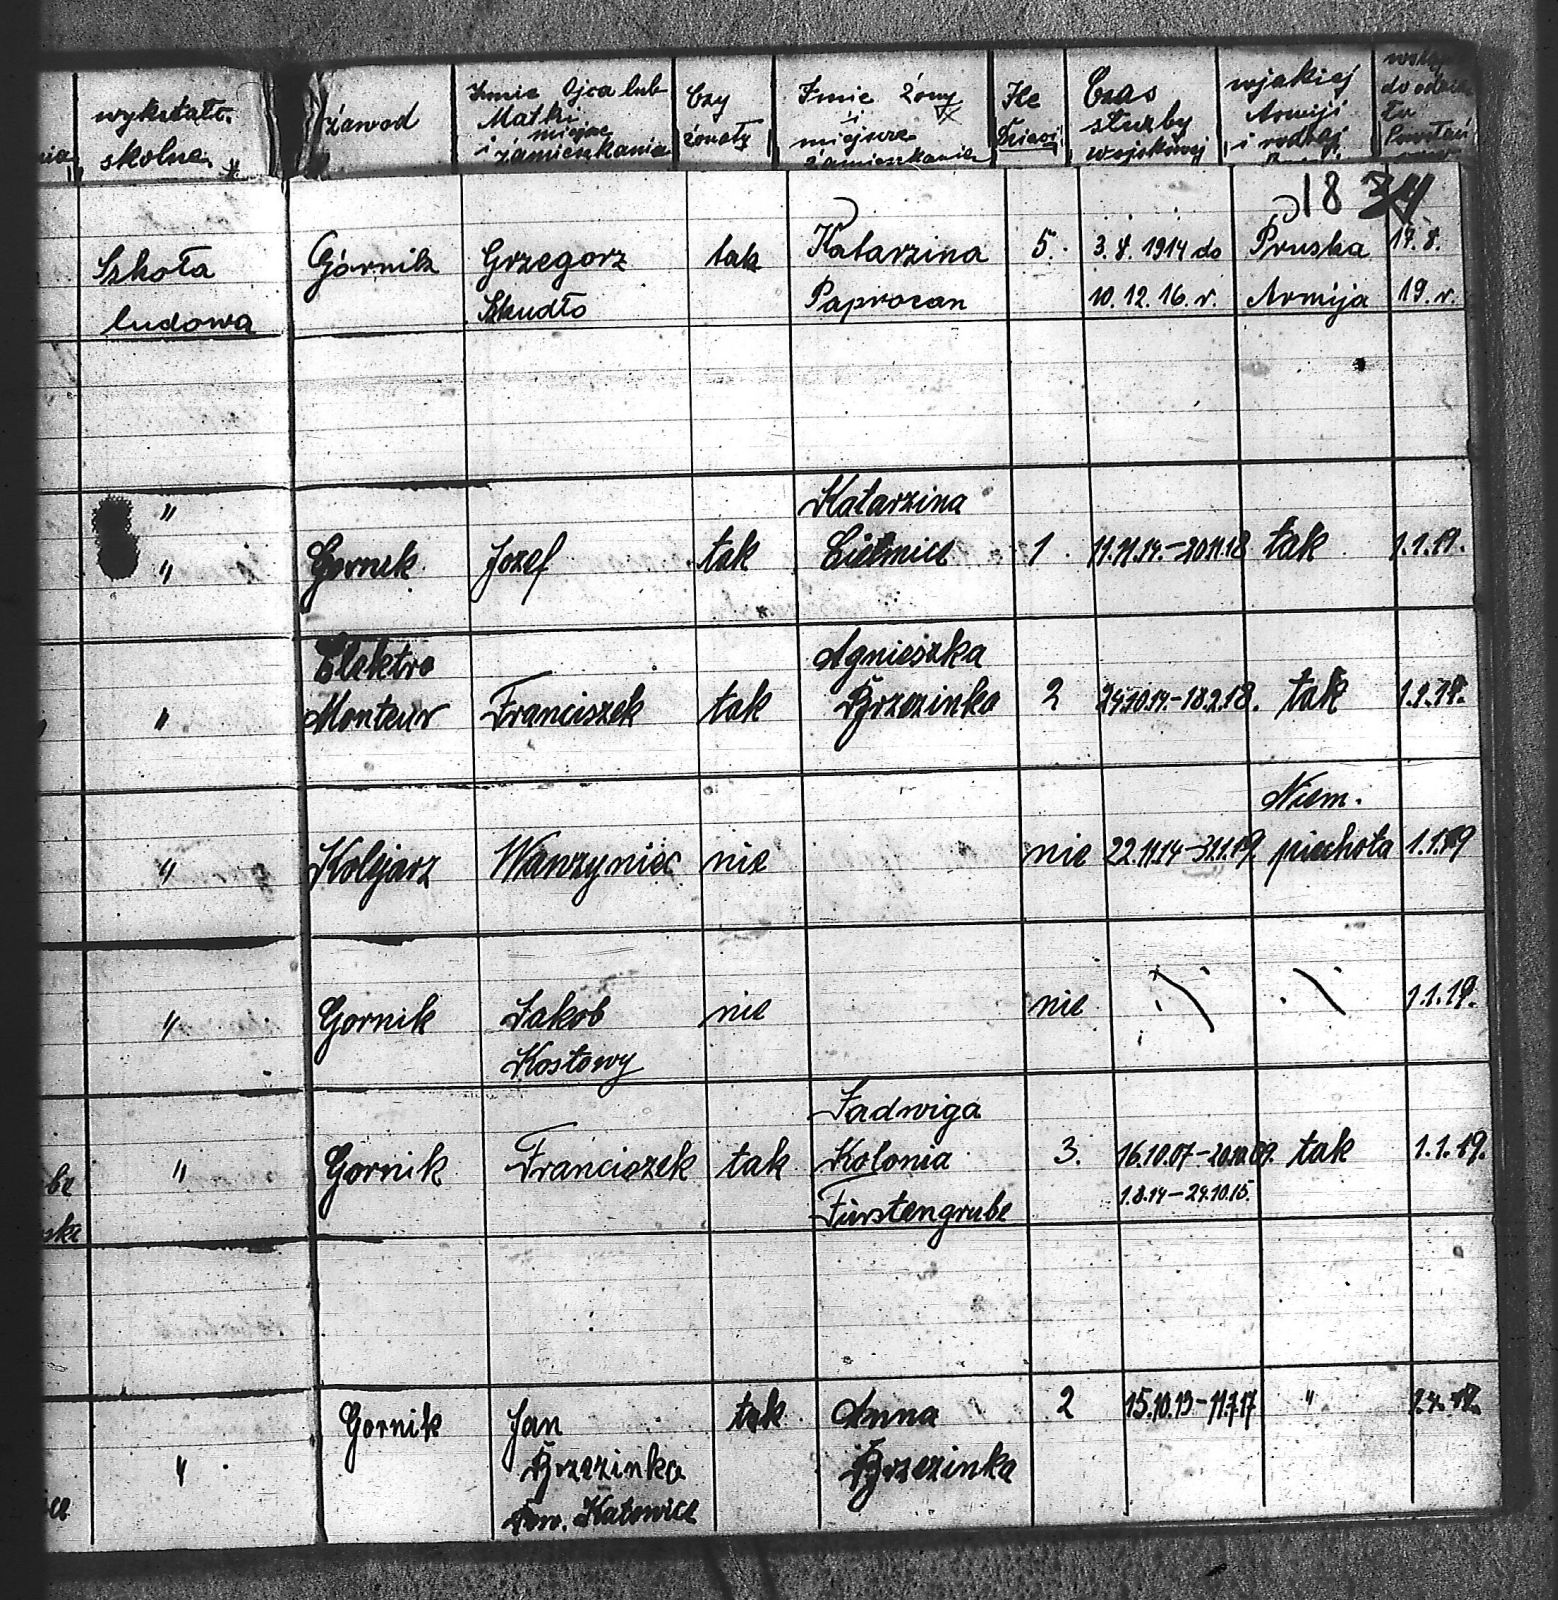 wykształt. skolne
zawod
Imie Ojca lub Matki i miejsce zamieszkania
Czy żonaty
Imie żony i miejsce zamieszkania
Ile Dzieci
Czas służby wojskowej
w jakiej Armiji i rodzaj
do
18 34
Szkoła Górnik Grzegorz tak Katarzina 5. 3.8.1914 do Pruska 17.8.
ludowa Szkudło Paprocan 10.12.16.r. Armija 19.r.
" Katarzina
" Gornik Jozef tak 1. 11.11.14.-20.11.18 tak 1.1.19.
Elektro Agnieszka
" Monteur Franciszek tak Brzezinka 2 24.10.14.-18.2.18. tak 1.1.19.
Niem.
" Kolejarz Wawrzyniec nie nie 22.11.14-31.1.19. piechota 1.1.19
" Gornik Jakob nie nie 1.1.19.
Kostowy
Jadwiga
" Gornik Franciszek tak Kolonia 3. 16.10.07-20.10.09. tak 1.1.19.
Fürstengrube 1.8.14-24.10.15.
Gornik Jan tak Anna 2 15.10.13-11.7.17 "
" Brzezinka Brzezinka
Pow. Katowice